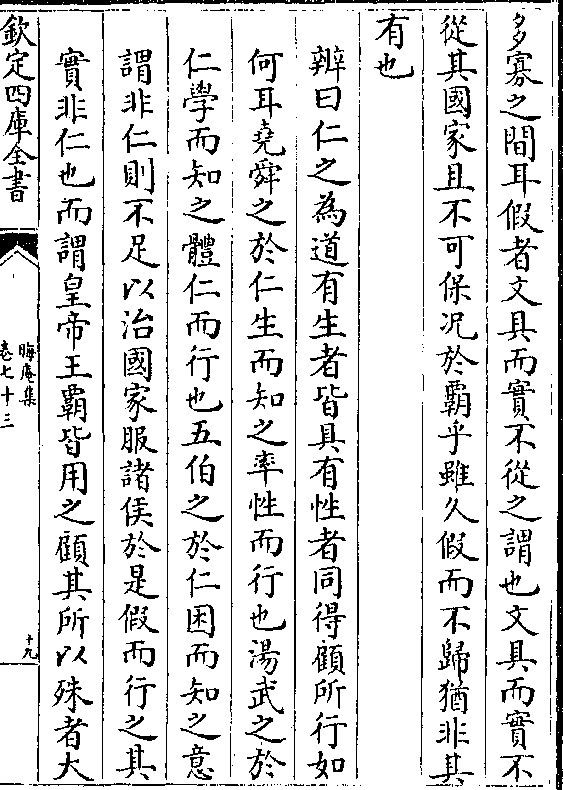 多寡之間耳假者文具而實不從之謂也文具而實不
從其國家且不可保况於霸乎雖久假而不歸猶非其
有也
辨曰仁之為道有生者皆具有性者同得顧所行如
何耳堯舜之於仁生而知之率性而行也湯武之於
仁學而知之體仁而行也五伯之於仁困而知之意
謂非仁則不足以治國家服諸侯於是假而行之其
實非仁也而謂皇帝王霸皆用之顧其所以殊者大
欽定四庫全書
晦庵集
卷七十三
十九